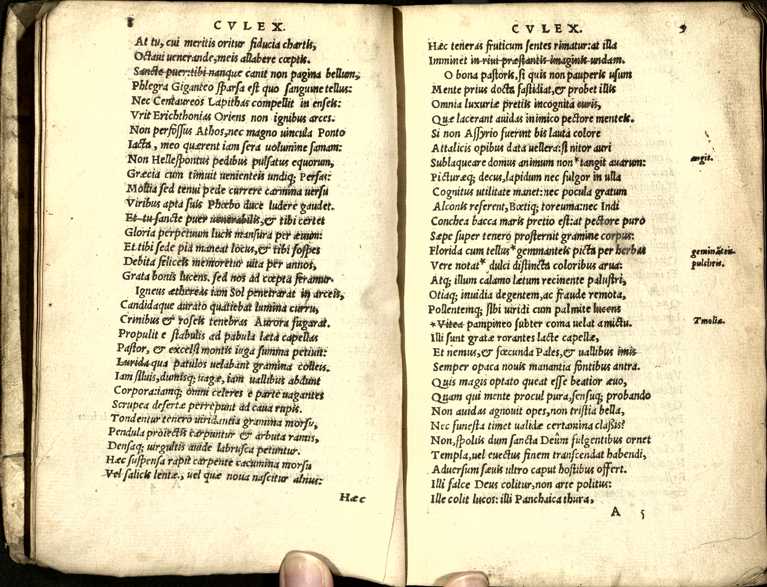 8
CVLEX.
At tu, cui meritis oritur fiducia chartis,
Octaui uenerande, meis allabere cœptis.
Sancte puer: tibi nanque canit non pagina bellum,
Phlegra Giganteo sparsa est quo sanguine tellus:
Nec Centaureos Lapithas compellit in enseis:
Vrit Erichthonias Oriens non ignibus arces.
Non perfossus Athos, nec magno uincula Ponto
Iacta, meo quærent iam sera uolumine famam:
Non Hellespontus pedibus pulsatus equorum,
Græcia cum timuit uenienteis undiq; Persas:
Mollia sed tenui pede currere carmina uersu
Viribus apta suis Phœbo duce ludere gaudet.
Et tu sancte puer uenerabilis, & tibi certet
Gloria perpetuum lucis mansura per æuum:
Et tibi sede pia maneat locus, & tibi sospes
Debita felicis memoretur uita per annos,
Grata bonis lucens. sed nos ad cœpta feramur.
Igneus æthereas iam Sol penetrarat in arceis,
Candidaque aurato quatiebat lumina curru,
Crinibus & roseis tenebras Aurora fugarat.
Propulit e stabulis ad pabula læta capellas
Pastor, & excelsi montis iuga summa petiuit:
Lurida qua patulos uelabant gramina colleis.
Iam siluis, dumisq; uagæ, iam uallibus abdunt
Corpora: iamq; omni celeres e parte uagantes
Scrupea desertæ perrepunt ad caua rupis.
Tondentur tenero uiridantia gramina morsu,
Pendula proiectis carpuntur & arbuta ramis,
Densaq; uirgultis auide labrusca petuntur.
Hæc suspensa rapit carpente cacumina morsu
Vel salicis lentæ, uel quæ noua nascitur alnus:
Hæc
CVLEX.
9
Hæc teneras fruticum sentes rimatur: at illa
Imminet in riui præstantis imaginis undam.
O bona pastoris, si quis non pauperis usum
Mente prius docta fastidiat, & probet illis
Omnia luxuriæ pretiis incognita curis,
Quæ lacerant auidas inimico pectore menteis.
Si non Assyrio fuerint bis lauta colore
Attalicis opibus data uellera: si nitor auri
Sublaqueare domus animum non *tangit auarum:
angit.
Picturæq; decus, lapidum nec fulgor in ulla
Cognitus utilitate manet: nec pocula gratum
Alconis referent, Bœtiq; toreuma: nec Indi
Conchea bacca maris pretio est: at pectore puro
Sæpe super tenero prosternit gramine corpus:
Florida cum tellus *gemmanteis picta per herbas
geminātis
Vere notat* dulci distincta coloribus arua:
pulchris.
Atq; illum calamo lætum recinente palustri,
Otiaq; inuidia degentem, ac fraude remota,
Pollentemq; sibi uiridi cum palmite lucens
*Vitea pampineo subter coma uelat amictu.
Tmolia.
Illi sunt gratæ rorantes lacte capellæ,
Et nemus, & fœcunda Pales, & uallibus imis
Semper opaca nouis manantia fontibus antra.
Quis magis optato queat esse beatior æuo,
Quam qui mente procul pura, sensuq; probando
Non auidas agnouit opes, non tristia bella,
Nec funesta timet ualidæ certamina classis?
Non, spoliis dum sancta Deûm fulgentibus ornet
Templa, uel euectus finem transcendat habendi,
Aduersum sæuis ultro caput hostibus offert.
Illi falce Deus colitur, non arte politus:
Ille colit lucos: illi Panchaica thura,
A 5